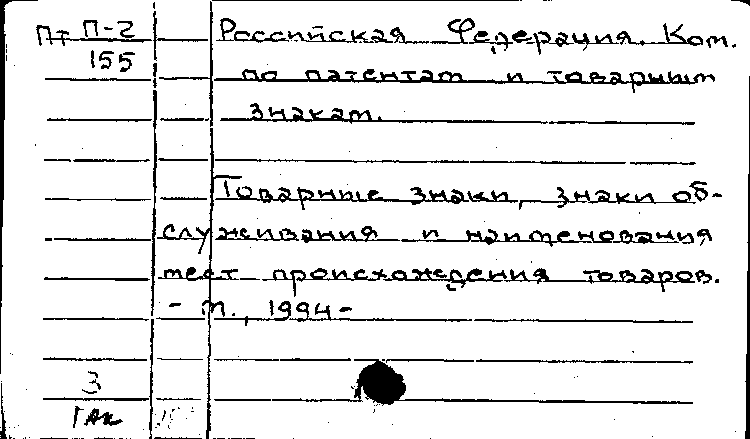 Пт П-2 Российская Федерация. Ком.
155 по патентам и товарным
знакам.
Товарные знаки, знаки об-
служивания и наименования
мест происхождения товаров.
- М., 1994-
3